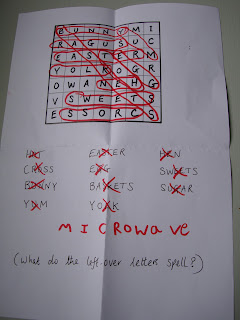 B U N N Y M I
R A G U S U C
E A S T E R M
Y O L K O G R
O W A N E H G
V S W E E T S
E S S O R C S
HOT EASTER HEN
CROSS EGG SWEETS
BUNNY BASKETS SUGAR
YUM YOLK
MICROWAVE
(What do the left-over letters spell?)